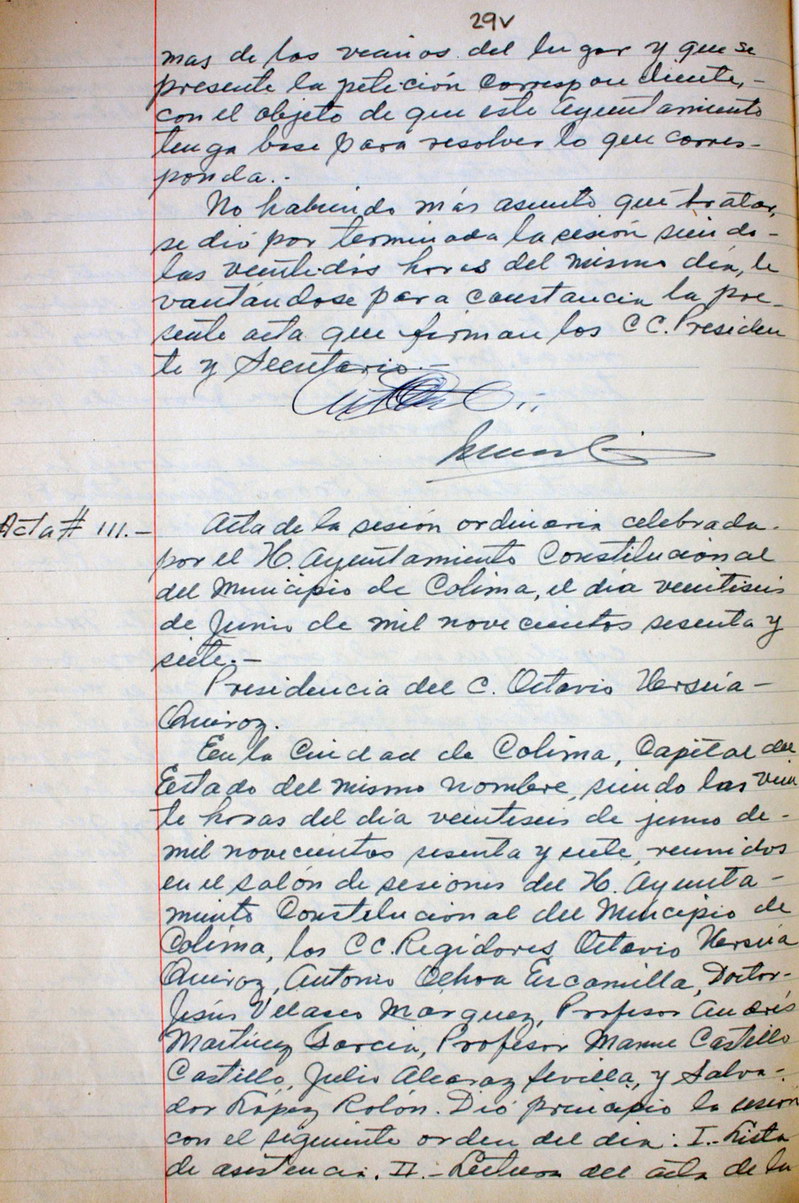 29v
mas de los vecinos del lugar y que se
presente la petición correspondiente,-
con el objeto de que este Ayuntamiento
tenga base para resolver lo que corres-
ponda..
No habiendo más asunto que tratar,
se dió por terminada la sesión siendo-
las veintidós horas del mismo día, le
vantándose para constancia la pre-
sente acta que firman los CC. Presiden
te y Secretario.-
Acta # 111.- Acta de la sesión ordinaria celebrada-
por el H. Ayuntamiento Constitucional
del Municipio de Colima, el día veintiseis
de Junio de mil novecientos sesenta y
siete.-
Presidencia del C. Octavio Urzúa-
Quiroz.
En la Ciudad de Colima, Capital del
Estado del mismo nombre, siendo las vein
te horas del día veintiseis de junio de-
mil novecientos sesenta y siete, reunidos
en el salón de sesiones del H. Ayunta-
miento Constitucional del Municipio de
Colima, los CC. Regidores Octavio Urzúa
Quiroz, Antonio Ochoa Escamilla, Doctor-
Jesús Velasco Márquez, Profesor Andrés
Martínez García, Profesor Manuel Castello
Castillo, Julio Alcaraz Sevilla, y Salva-
dor López Rolón. Dió principio la sesión
con el siguiente orden del día: I.- Lista
de asistencia. II.- Lectura del acta de la